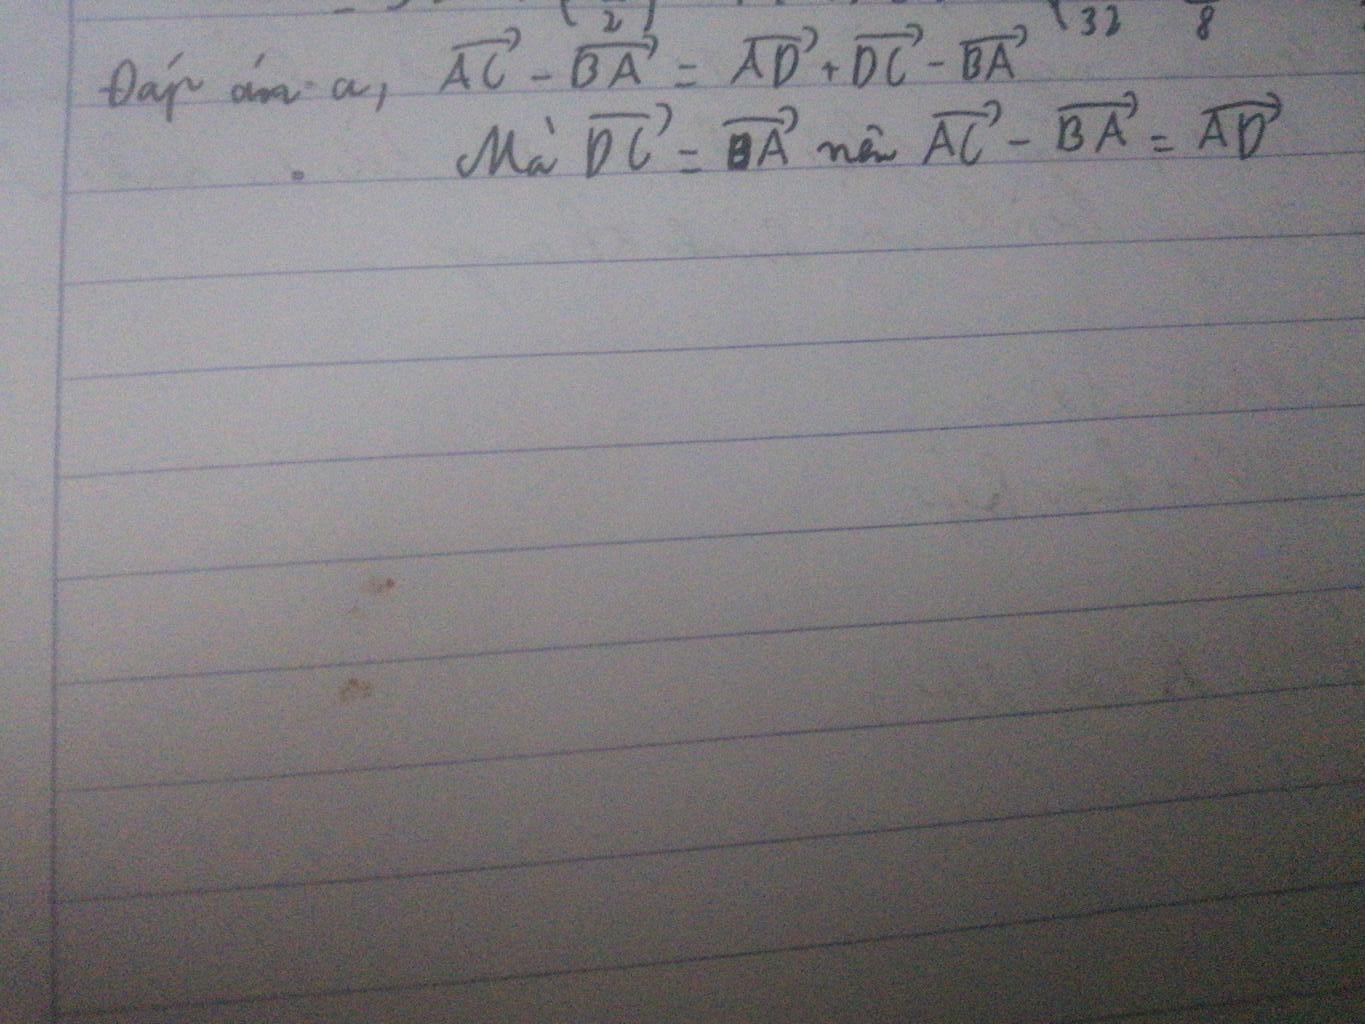 (2) (32 8
Đáp án a, \overrightarrow{AC} - \overrightarrow{BA} = \overrightarrow{AD} + \overrightarrow{DC} - \overrightarrow{BA}
Mà \overrightarrow{DC} = \overrightarrow{BA} nên \overrightarrow{AC} - \overrightarrow{BA} = \overrightarrow{AD}